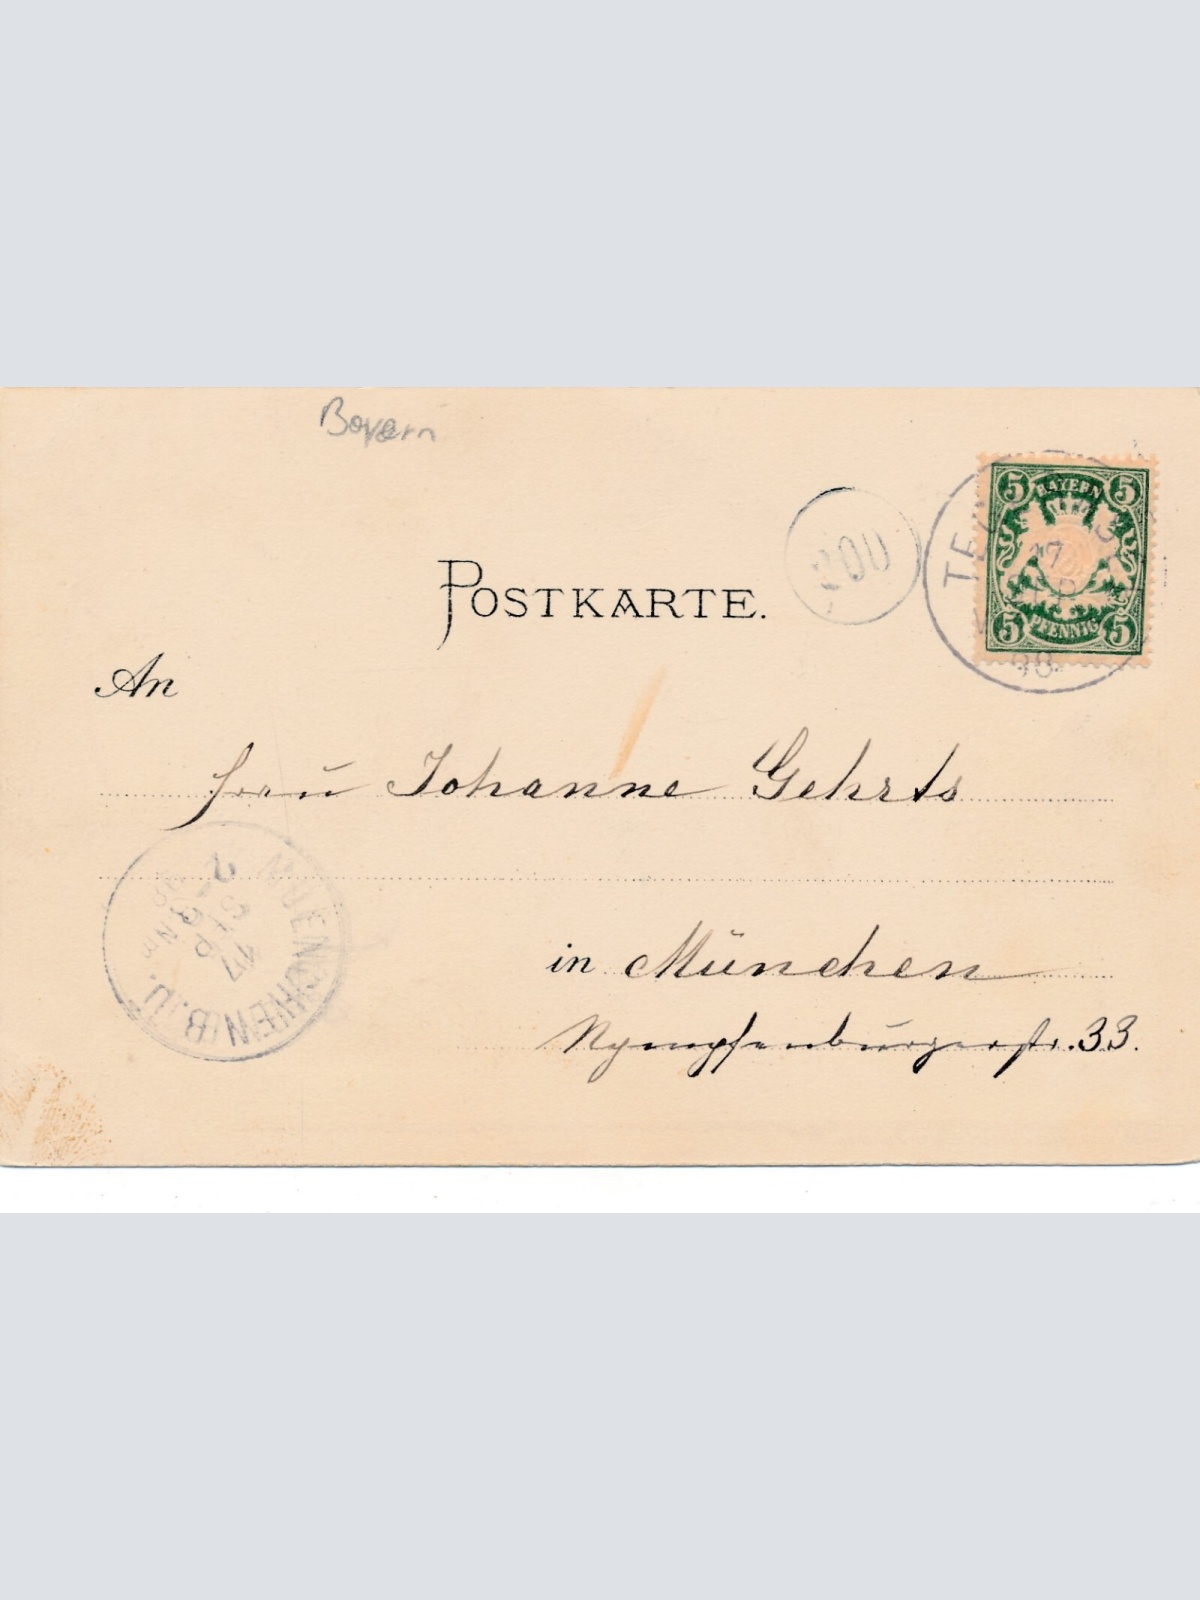 Bayern
5 BAYERN 5
5 PFENNIG 5
TE
17
SEP
98
200
POSTKARTE.
An
Frau Johanne Gehrts
MUENCHEN (B.U.
17
SEP
in München
Nymphenburgerstr. 33.